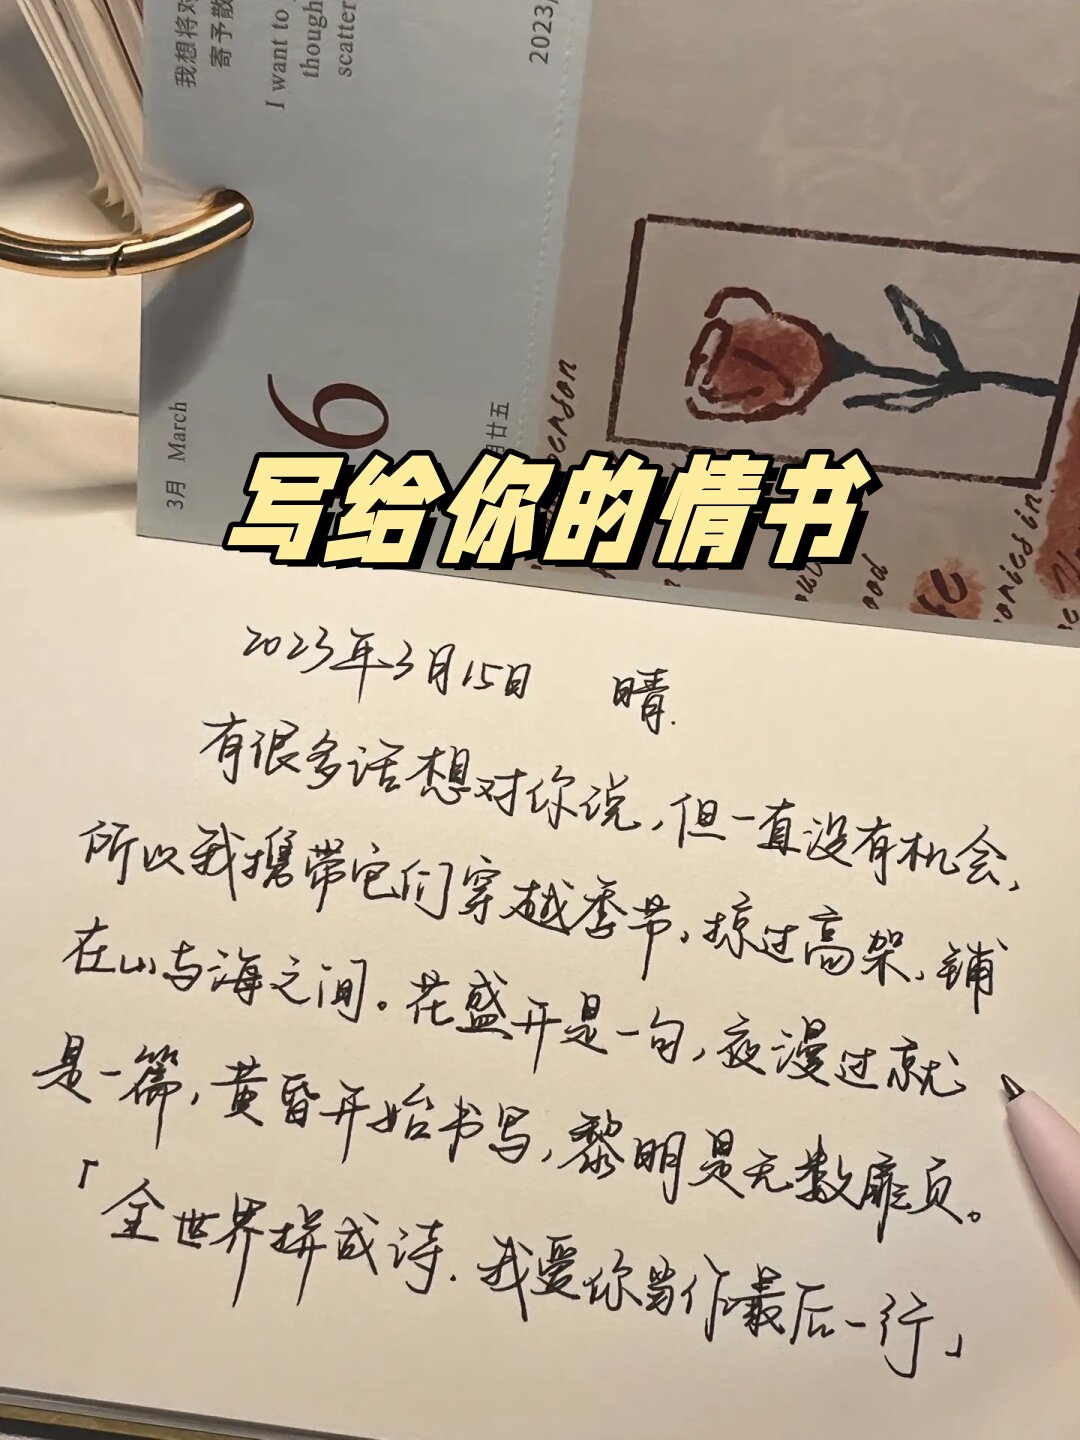 我想将对
寄予散
I want to
though
scatter
2023/
3月 March
月廿五
写给你的情书
2023年3月15日 晴.
有很多话想对你说,但一直没有机会,
所以我携带它们穿越季节,掠过高架,铺
在山与海之间。花盛开是一句,夜漫过就
是一篇,黄昏开始书写,黎明是无数扉页。
「全世界拼成诗.我爱你当作最后一行」